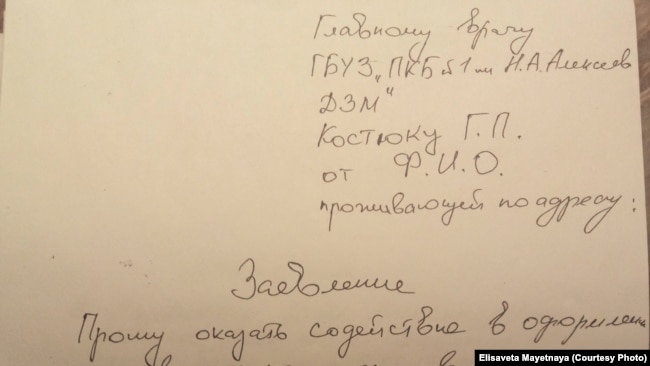 Главному врачу
ГБУЗ „ПКБ №1 им Н.А.Алексеев
ДЗМ"
Костюку Г.П.
от Ф.И.О.
проживающей по адресу:
Заявление
Прошу оказать содействие в оформлени
Elisaveta Mayetnaya (Courtesy Photo)